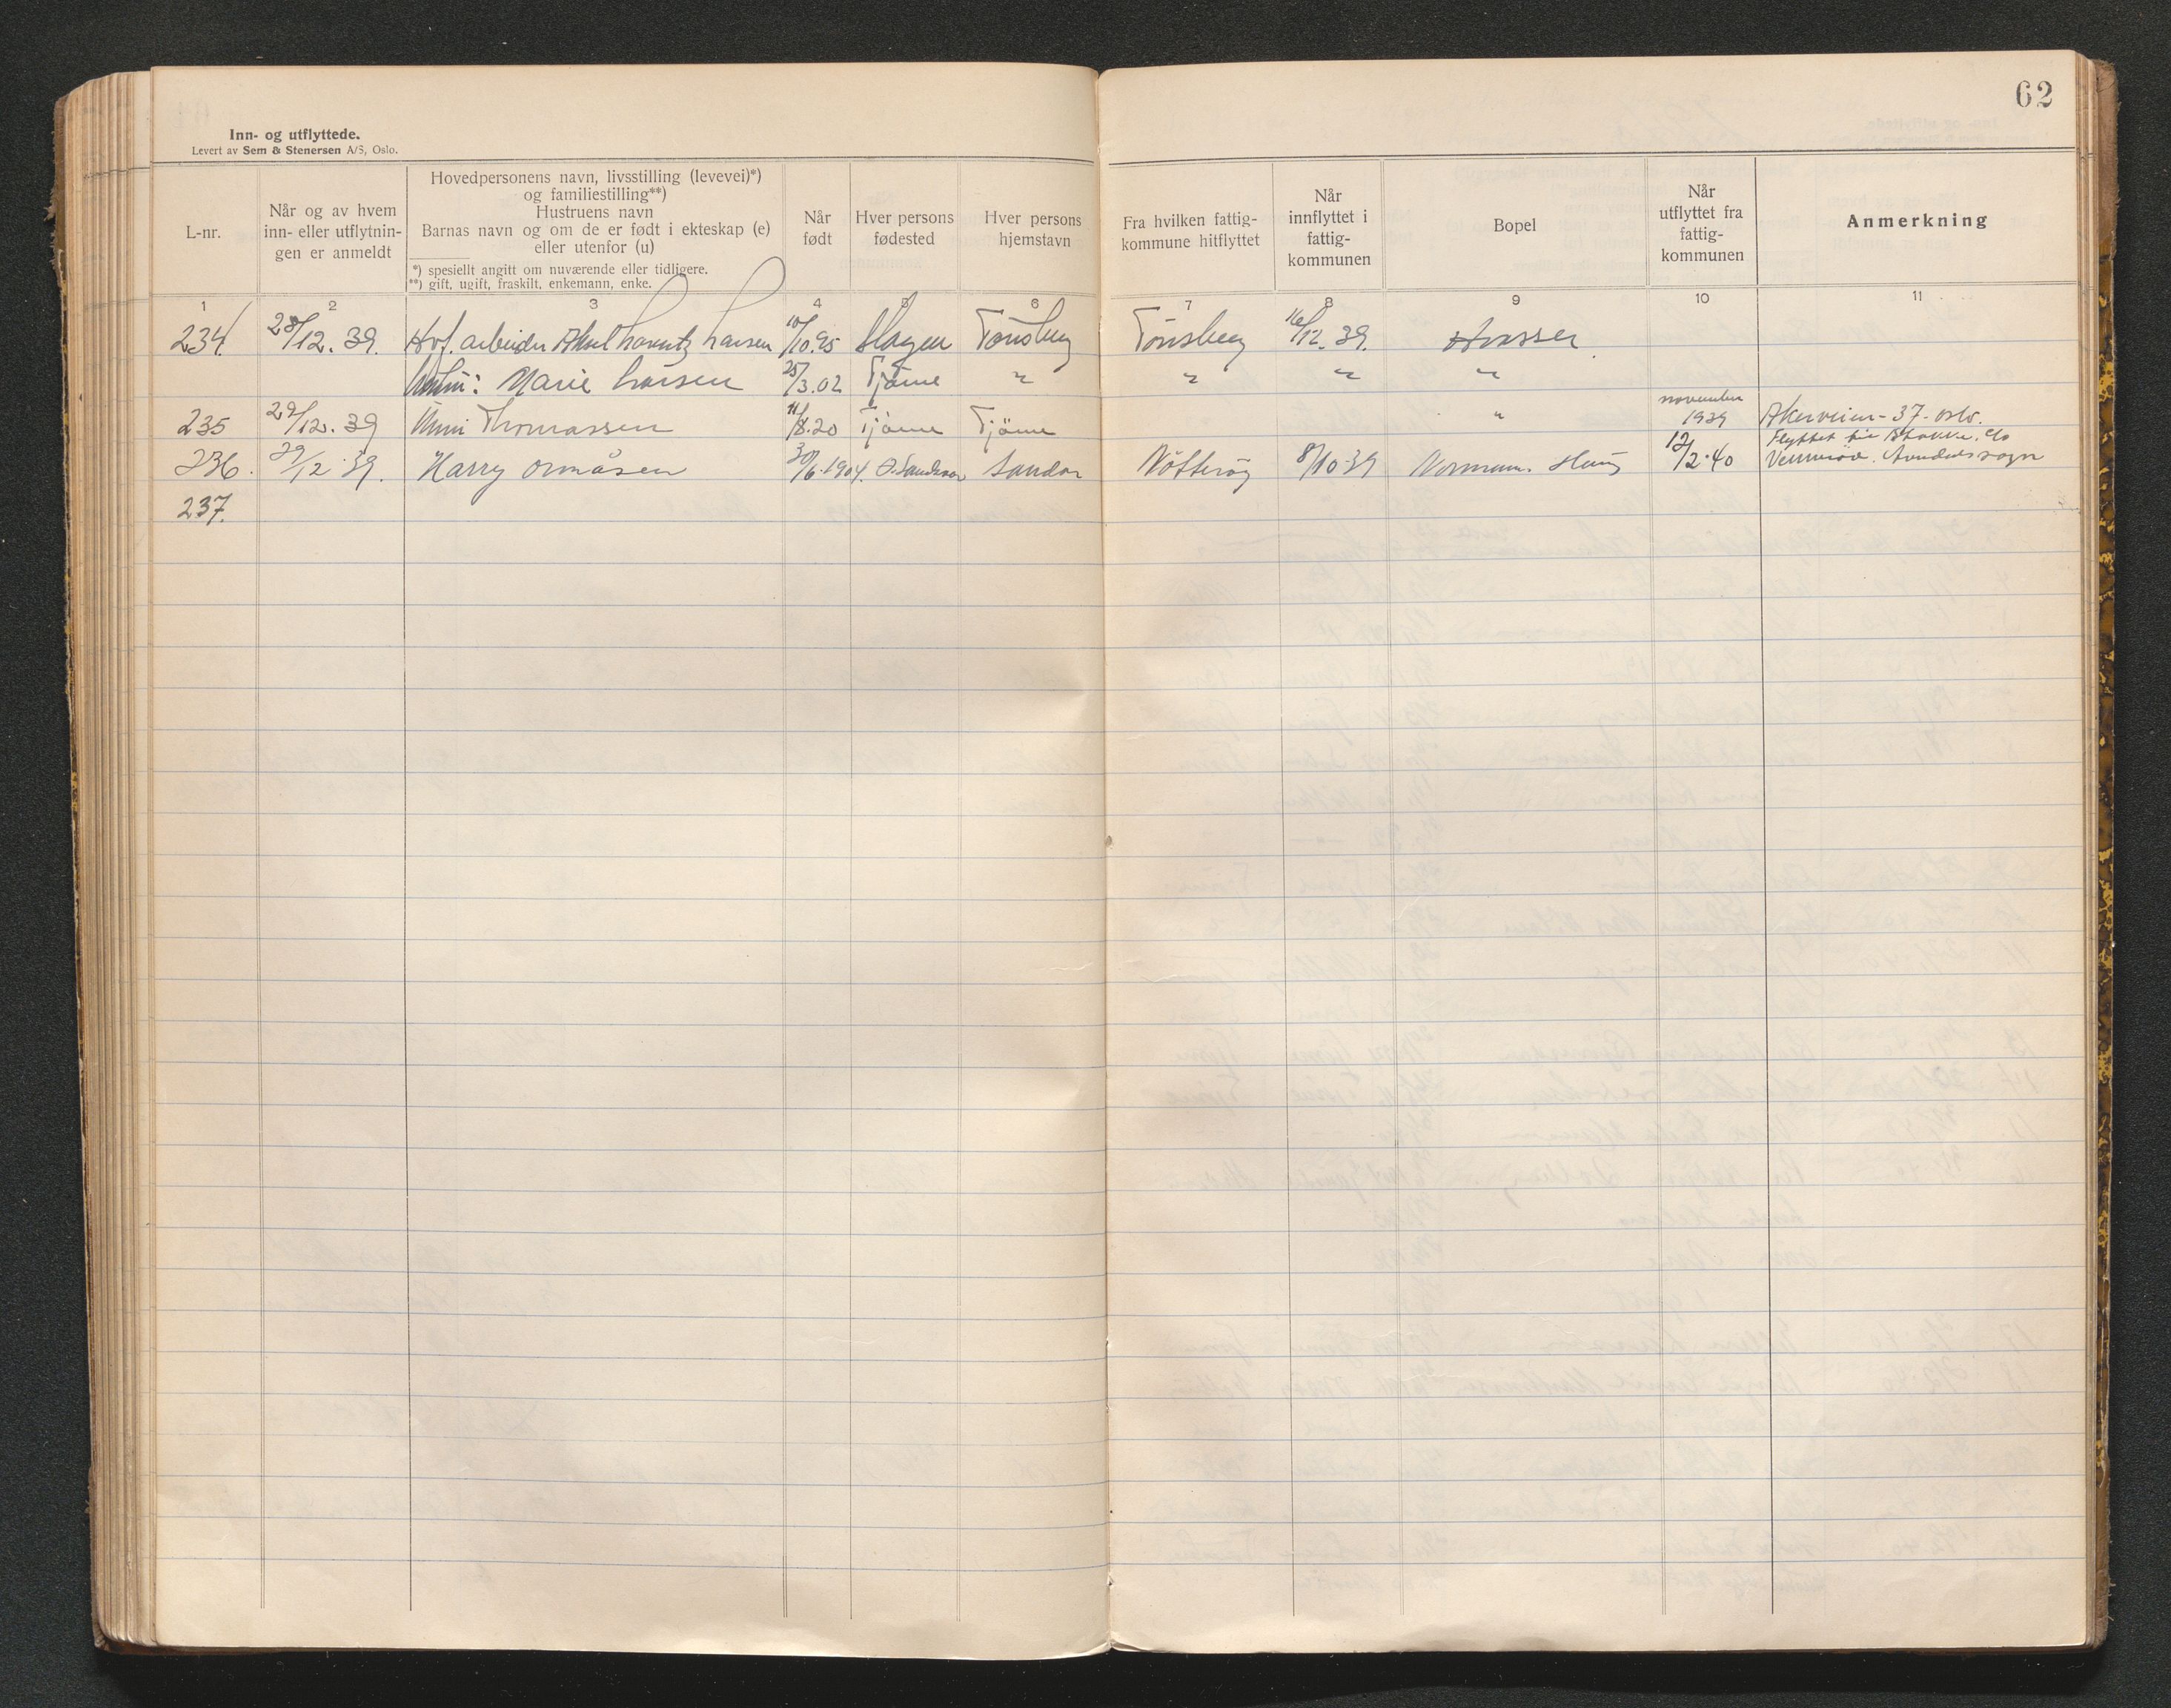 62
Inn- og utflyttede.
Levert av Sem & Stenersen A/S, Oslo.
L-nr.
Når og av hvem
inn- eller utflytnin-
gen er anmeldt
Hovedpersonens navn, livsstilling (levevei)*)
og familiestilling**)
Hustruens navn
Barnas navn og om de er født i ekteskap (e)
eller utenfor (u)
*) spesiellt angitt om nuværende eller tidligere.
**) gift, ugift, fraskilt, enkemann, enke.
Når
født
Hver persons
fødested
Hver persons
hjemstavn
Fra hvilken fattig-
kommune hitflyttet
Når
innflyttet i
fattig-
kommunen
Bopel
Når
utflyttet fra
fattig-
kommunen
Anmerkning
1 2 3 4 5 6 7 8 9 10 11
234. 28/12. 39. Hvf. arbeider Aksel Lorentz Larsen 10/10.95 Slagen Tønsberg Tønsberg 16/12. 39. Hvasser
Marie Larsen 25/3.02 Tjøme " " " "
235 29/12. 39 Thomassen 11/8.20 Tjöme Tjöme " november 1939 Akerveien - 37. Oslo.
236. 29/12.39. Harry Ormåsen 30/6.1904. Sandar Nötteröy 8/10 39 Haug 12/2.40 Flyttet til Stokke, c/o
237.